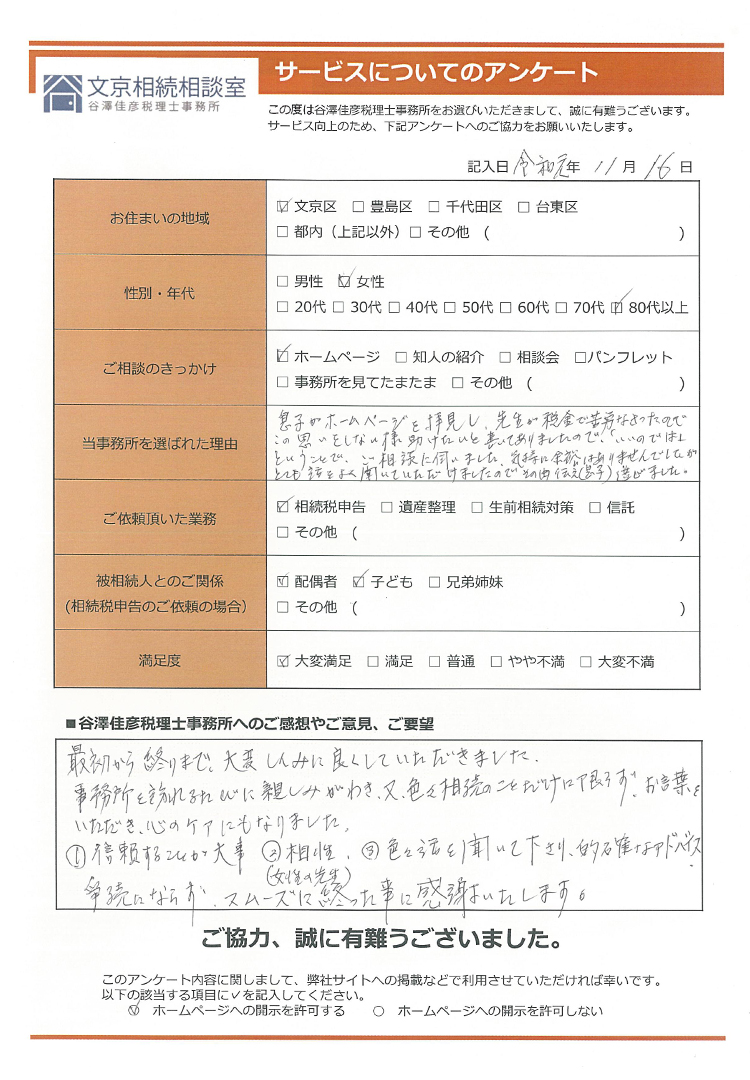 文京相続相談室
谷澤佳彦税理士事務所
サービスについてのアンケート
この度は谷澤佳彦税理士事務所をお選びいただきまして、誠に有難うございます。
サービス向上のため、下記アンケートへのご協力をお願いいたします。
記入日 令和元年 11月 16日
お住まいの地域
☑ 文京区 □ 豊島区 □ 千代田区 □ 台東区
□ 都内（上記以外） □ その他 （ ）
性別・年代
□ 男性 ☑ 女性
□ 20代 □ 30代 □ 40代 □ 50代 □ 60代 □ 70代 ☑ 80代以上
ご相談のきっかけ
☑ ホームページ □ 知人の紹介 □ 相談会 □パンフレット
□ 事務所を見てたまたま □ その他 （ ）
当事務所を選ばれた理由
息子がホームページを拝見し、先生が税金で苦労なさったので
この思いをしない様助けたいと書いてありましたので、「いいのでは」
ということで、ご相談に伺いました。気持に余裕はありませんでしたが
とても話をよく聞いていただけましたのでその由伝え(息子)達しました。
ご依頼頂いた業務
☑ 相続税申告 □ 遺産整理 □ 生前相続対策 □ 信託
□ その他 （ ）
被相続人とのご関係
(相続税申告のご依頼の場合)
☑ 配偶者 ☑ 子ども □ 兄弟姉妹
□ その他 （ ）
満足度
☑ 大変満足 □ 満足 □ 普通 □ やや不満 □ 大変不満
■谷澤佳彦税理士事務所へのご感想やご意見、ご要望
最初から終りまで、大変しんみに良くしていただきました。
事務所を訪れるたびに親しみがわき、又、色々相続のことだけに限らず、お言葉を
いただき、心のケアにもなりました。
①信頼することが大事 ②相性、③色々話を聞いて下さり、的確なアドバイス、
(女性の先生)
争続にならず、スムーズに終った事に感謝いたします。
ご協力、誠に有難うございました。
このアンケート内容に関しまして、弊社サイトへの掲載などで利用させていただければ幸いです。
以下の該当する項目に✓を記入してください。
☑ ホームページへの開示を許可する ○ ホームページへの開示を許可しない